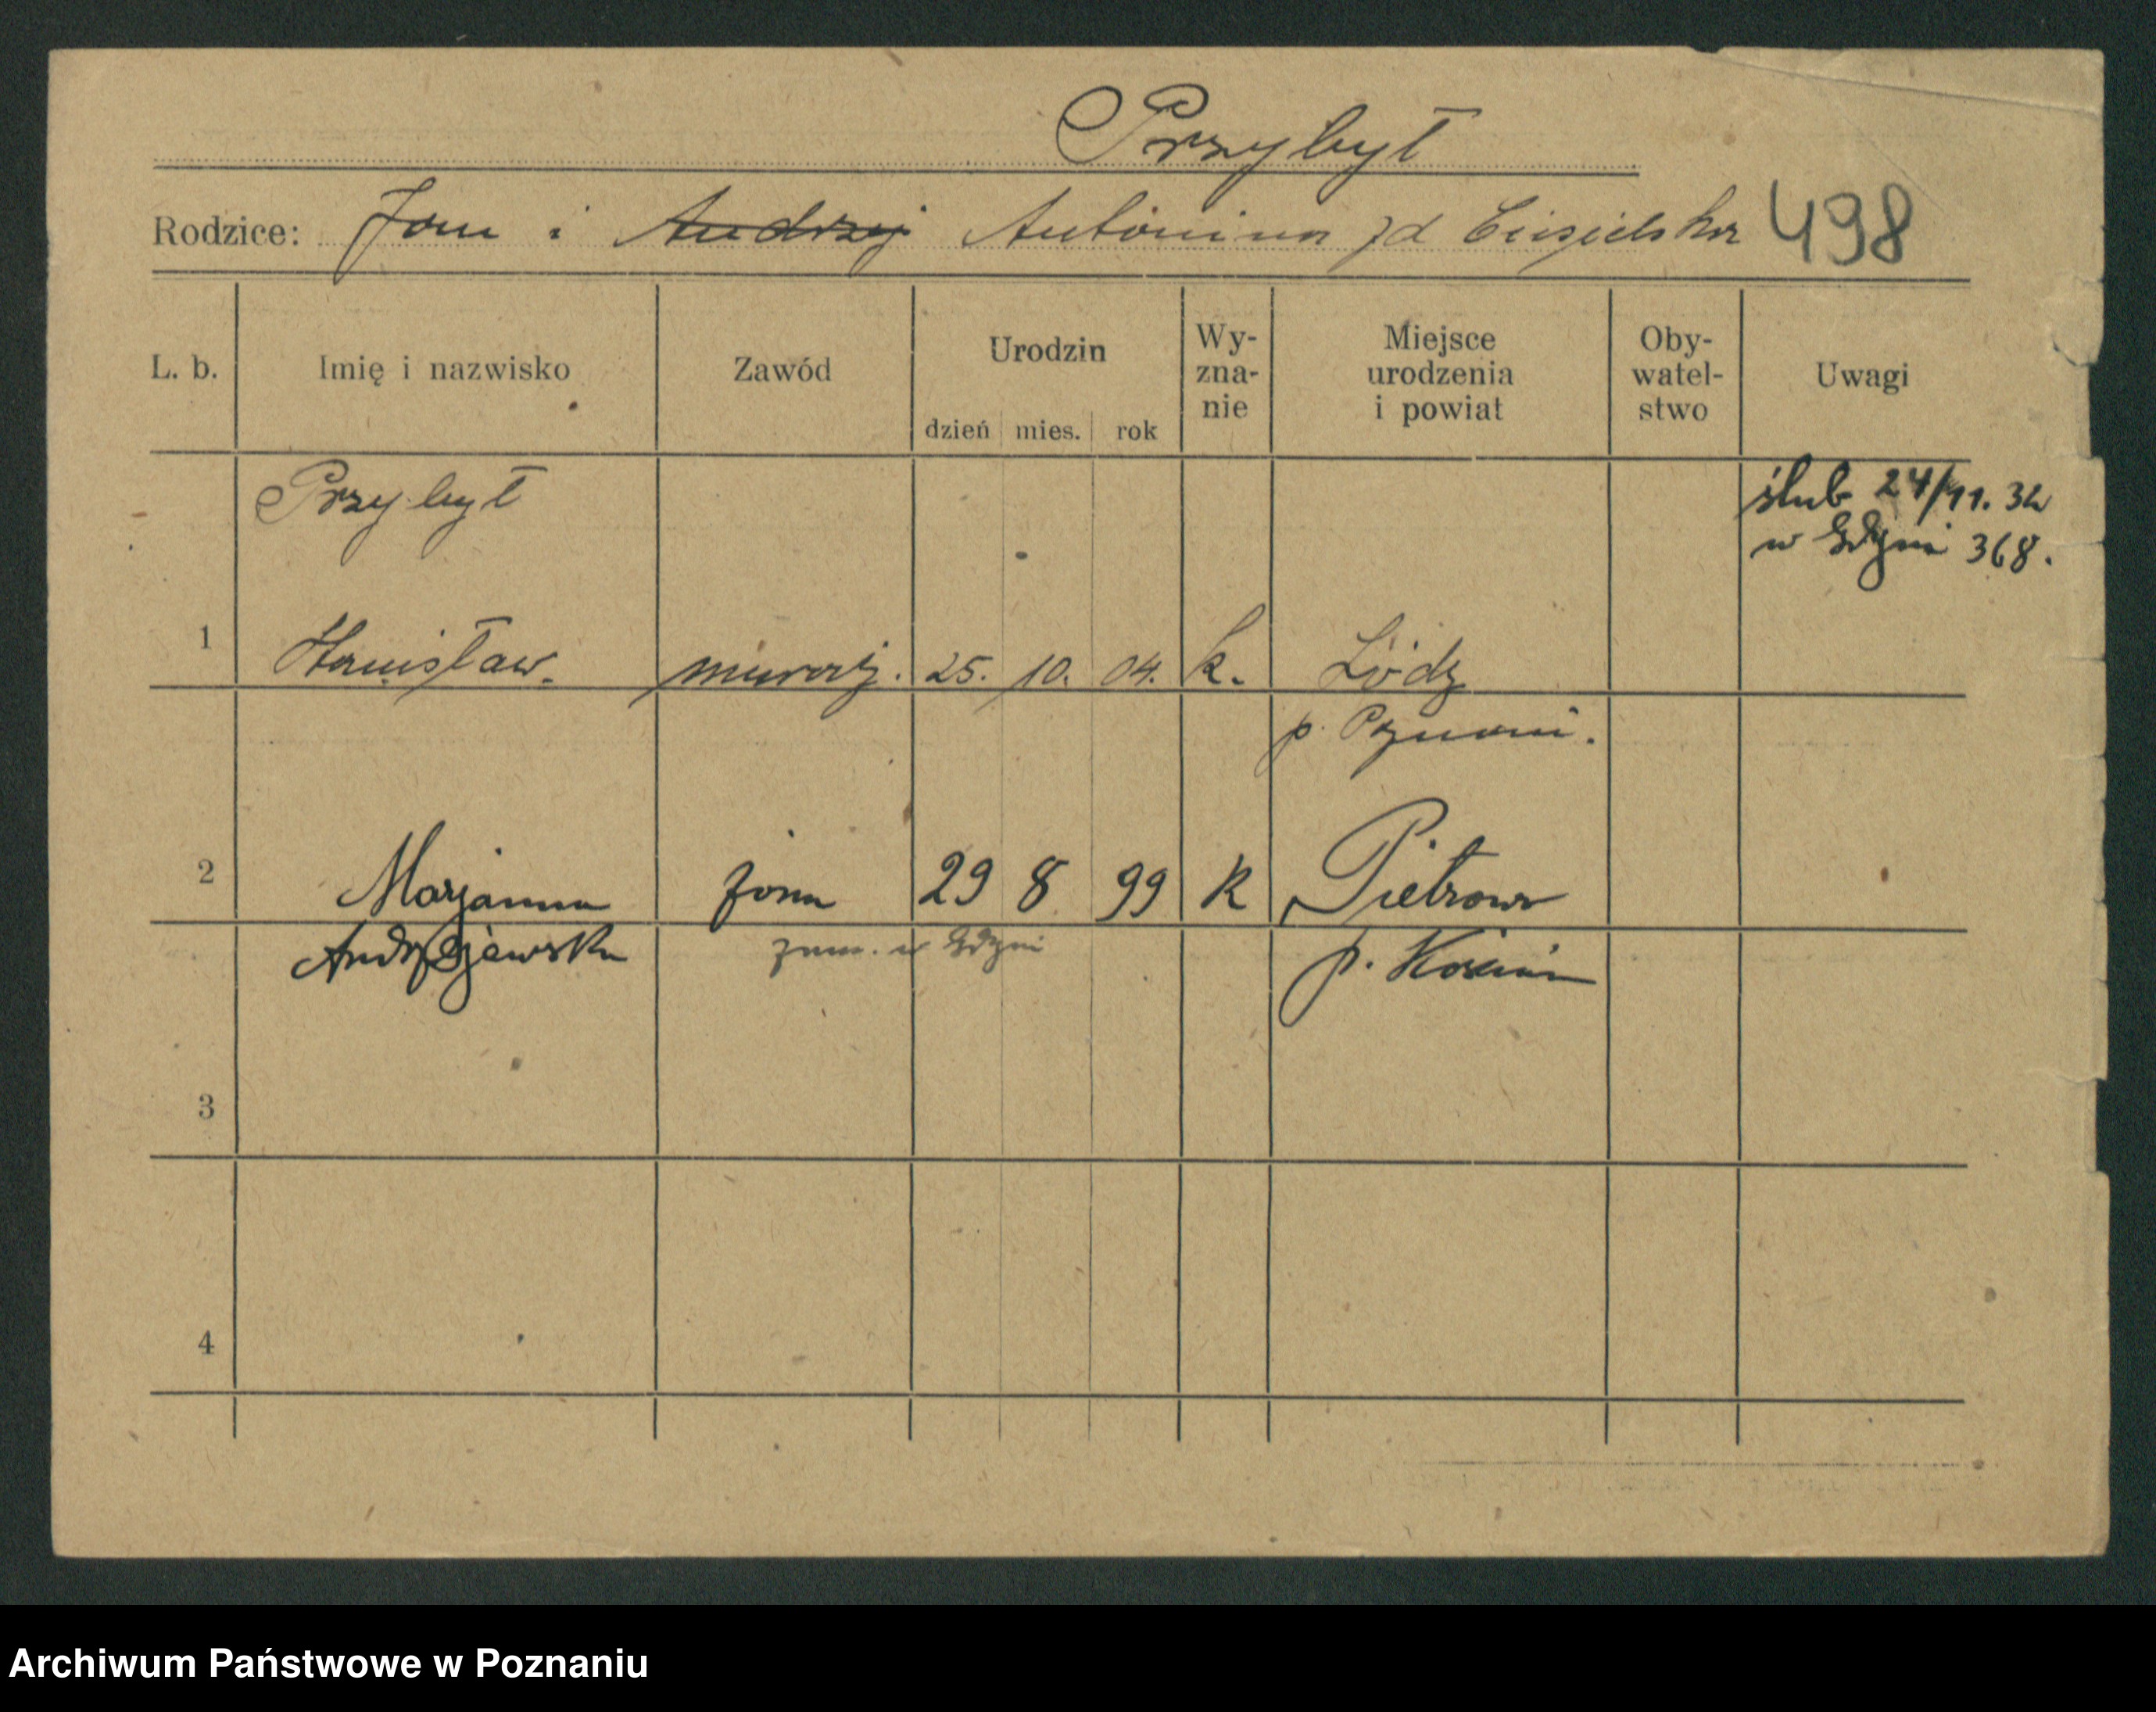 Przybył
Rodzice: Jan i Andrzej Antonina zd Ciesielska 498
L. b. Imię i nazwisko Zawód Urodzin dzień mies. rok Wy-zna-nie Miejsce urodzenia i powiat Oby-watel-stwo Uwagi
Przybył ślub 24/11. 32
w Gdyni 368.
1 Stanisław. murarz. 25. 10. 04. k. Łódź
p. Poznań.
2 Marjanna żona 29 8 99 k Pietrowo
Andrzejewska zam. w Gdyni p. Kościan
3
4
Archiwum Państwowe w Poznaniu